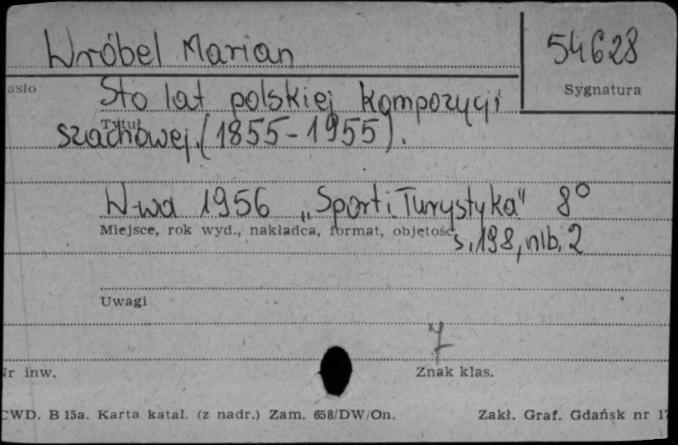 Wróbel Marian
54628
asło
Sygnatura
Sto lat polskiej kompozycji
Tytuł
szachowej. (1855-1955).
W-wa 1956 „Sport i Turystyka" 8°
Miejsce, rok wyd., nakładca, format, objętość
s. 198, nlb. 2
Uwagi
7
Nr inw.
Znak klas.
CWD. B 15a. Karta katal. (z nadr.) Zam. 658/DW/On.
Zakł. Graf. Gdańsk nr 17